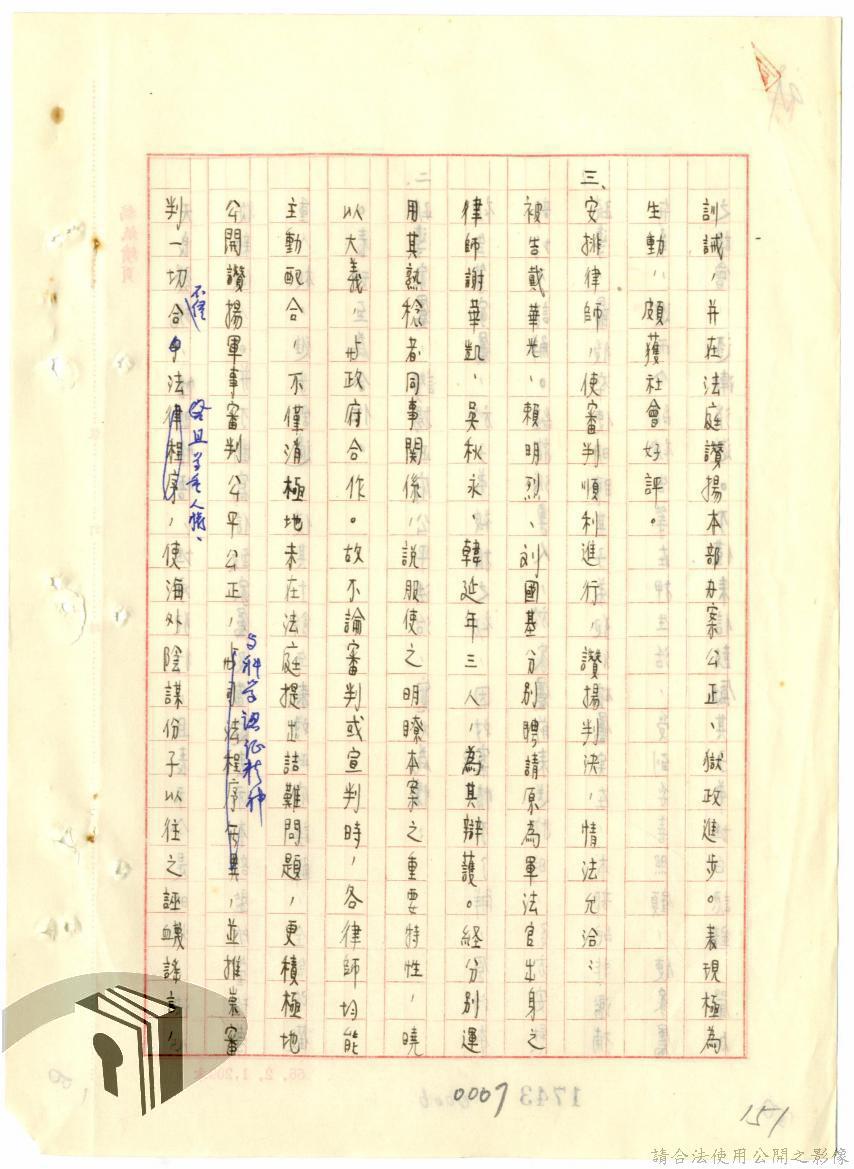 訓誡，并在法庭讚揚本部办案公正、獄政進步。表現極為
生動，頗獲社會好評。
三、安排律師，使審判順利進行，讚揚判決，情法允洽：
被告戴華光、賴明烈、刘國基分別聘請原為軍法官出身之
律師謝華凱、吳秋永、韓延年三人，為其辯護。経分別運
用其熟稔者同事関係，說服使之明瞭本案之重要特性，曉
以大義，与政府合作。故不論審判或宣判時，各律師均能
主動配合，不僅消極地未在法庭提出詰難問題，更積極地
公開讚揚軍事審判公平公正，与司法程序無異，並推崇審
与科学認証精神
判一切合乎法律程序，使海外陰謀份子以往之誣衊謠言，
不僅
並且
人情、
0007
1743
151
請合法使用公開之影像